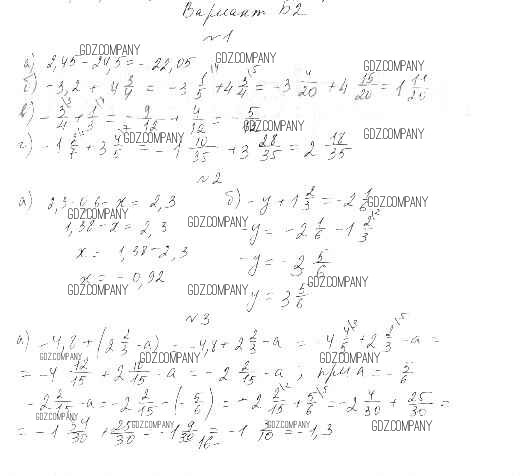 Вариант Б2
№1
а) 2,45 - 24,5 = - 22,05
б) -3,2 + 4 3/4 = -3 1/5 + 4 3/4 = -3 4/20 + 4 15/20 = 1 11/20
в) - 3/4 + 1/3 = - 9/12 + 4/12 = - 5/12
г) -1 2/7 + 3 4/5 = -1 10/35 + 3 28/35 = 2 18/35
№2
а) 2,3 · 0,6 - x = 2,3
б) -y + 1 2/3 = -2 1/6
1,38 - x = 2,3
-y = -2 1/6 - 1 2/3
x = 1,38 - 2,3
-y = -3 5/6
x = -0,92
y = 3 5/6
№3
а) -4,8 + (2 2/3 - a) = -4,8 + 2 2/3 - a = -4 4/5 + 2 2/3 - a =
= -4 12/15 + 2 10/15 - a = -2 2/15 - a ; при a = - 5/6
-2 2/15 - a = -2 2/15 - (- 5/6) = -2 2/15 + 5/6 = -2 4/30 + 25/30 =
= -1 34/30 + 25/30 = -1 9/30 = -1 3/10 = -1,3
GDZ.COMPANY